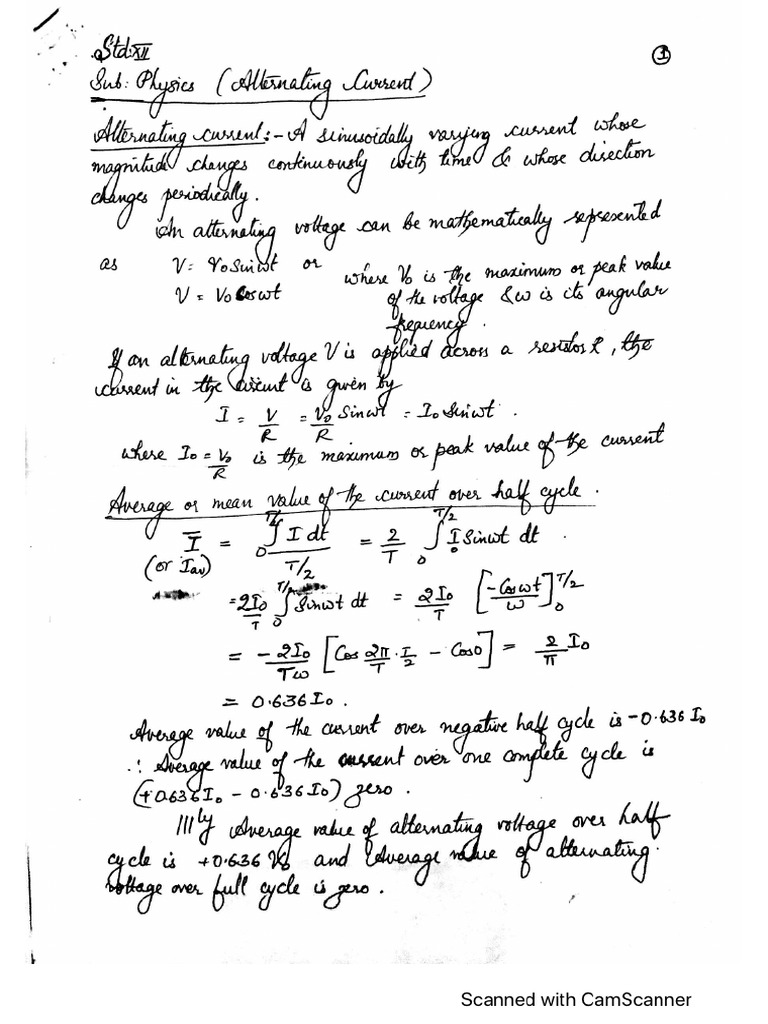 Std: XII
①
Sub: Physics (Alternating Current)
Alternating current:- A sinusoidally varying current whose
magnitude changes continuously with time & whose direction
changes periodically.
An alternating voltage can be mathematically represented
as V = V₀ Sin ωt or where V₀ is the maximum or peak value
V = V₀ Cos ωt of the voltage & ω is its angular
frequency.
If an alternating voltage V is applied across a resistor R, the
current in the circuit is given by
I = V/R = V₀/R Sin ωt = I₀ Sin ωt.
where I₀ = V₀/R is the maximum or peak value of the current
Average or mean value of the current over half cycle.
Ī (or Iav) = ₀∫^T/2 I dt / T/2 = 2/T ₀∫^T/2 I₀ Sin ωt dt.
= 2I₀/T ₀∫^T/2 Sin ωt dt = 2I₀/T [-Cos ωt/ω]₀^T/2
= -2I₀/Tω [Cos 2π/T · T/2 - Cos 0] = 2/π I₀
= 0.636 I₀.
Average value of the current over negative half cycle is -0.636 I₀
∴ Average value of the current over one complete cycle is
(+0.636 I₀ - 0.636 I₀) zero.
IIIly Average value of alternating voltage over half
cycle is +0.636 V₀ and Average value of alternating
voltage over full cycle is zero.
Scanned with CamScanner